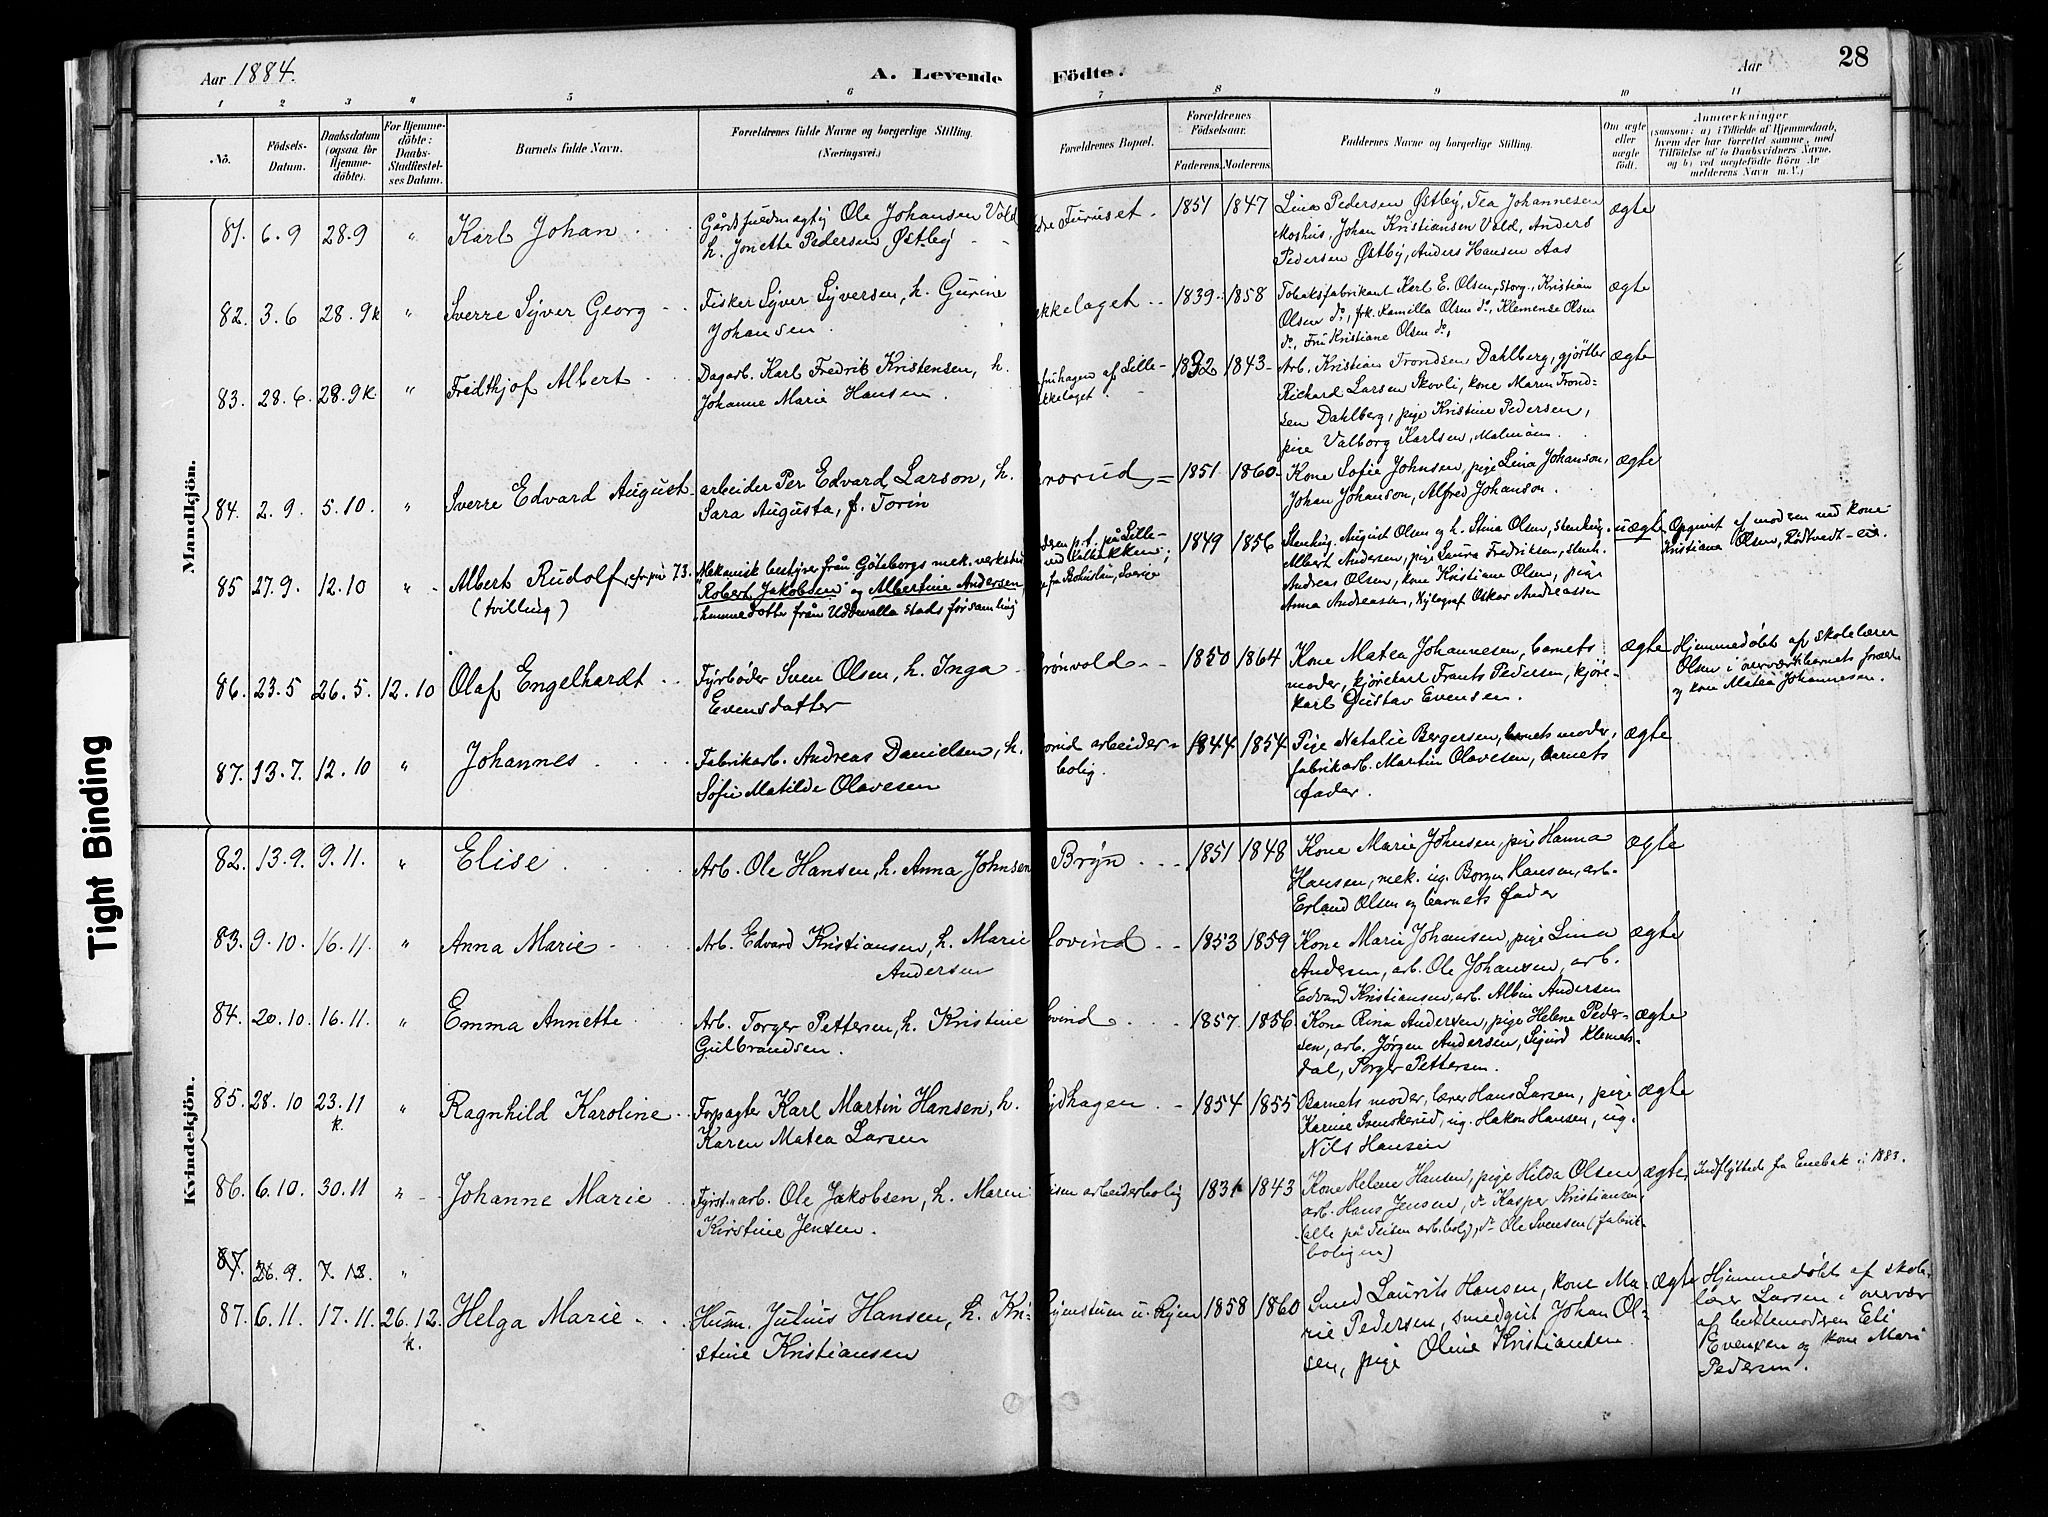 Aar 1884.
A. Levende Födte.
Aar
28
1 2 3 4 5 6 7 8 9 10 11
No.
Födsels-Datum.
Daabsdatum (ogsaa for Hjemme-döbte).
For Hjemme-döbte: Daabs-Stadfæstel-ses Datum.
Barnets fulde Navn.
Forældrenes fulde Navne og borgerlige Stilling. (Næringsvei.)
Forældrenes Bopæl.
Forældrenes Födselsaar.
Faderens. Moderens.
Faddernes Navne og borgerlige Stilling.
Om ægte eller uægte født.
Anmærkninger
(saasom: a) i Tilfælde af Hjemmedaab, hvem der har forrettet samme, med Tilföielse af to Daabsvidners Navne, og b) ved uægtefödte Börn Anmelderens Navn m. V.)
Mandkjön.
81. 6.9 28.9 " Karl Johan Gårdsfuldmægtig Ole Johansen Vold h. Jonette Pedersen Østby Furuset 1851 1847 Lina Pedersen Østby, Tea Johannesen
Moshus, Johan Kristiansen Vold, Anders
Pedersen Østby, Anders Hansen Aas ægte
82. 3.6 28.9 k " Sverre Syver Georg Fisker Syver Syversen, h. Gurine
Johansen ekkelaget 1839 1858 Tobaksfabrikant Karl E. Olsen, storg., Kristian
Olsen do, frk. Kamilla Olsen do, Klemense Olsen
do, Fru Kristiane Olsen do, ægte
83. 28.6. 28.9 k. " Fridthjof Albert Dagarb. Karl Fredrik Kristensen, h.
Johanne Marie Hansen af Lille-
ekkelaget. 1832 1843 Arb. Kristian Trondsen Dahlberg, gjørtler
Richard Larsen Skovli, kone Maren Trond-
sen Dahlberg, pige Kristine Pedersen,
pige Valborg Karlsen, Malmöen. ægte
84. 2.9. 5.10. " Sverre Edvard August arbeider Per Edvard Larson, h.
Sara Augusta, f. Torin rorud 1851 1860 Kone Sofie Johnsen, pige Lina Johanson,
Johan Johanson, Alfred Johanson. ægte
85 27.9. 12.10 " Albert Rudolf, cfr. pie 73.
(tvilling) Mekanisk bestyrer från Göteborgs mek. verkstad
Robert Jakobsen og Albertine Andersen,
hemmadotter från Uddevalla stads församling p.t. på Lille-
fra Bohuslän, Sverige 1849 1856 Stenhug. August Olsen og h. Stina Olsen, stenhug.
Albert Andersen, pige Laura Fredriksen, stenh.
Andreas Olsen, kone Kristiane Olsen, pige
Anna Andreassen, Xylograf Oskar Andreassen uægte Opgivet af modren ved kone
Kristiane Olsen, Rødtvedt
86. 23.5 26.5. 12.10 Olaf Engelhardt Fyrbøder Sven Olsen, h. Inga
Evensdatter rönvold 1850 1864 Kone Matea Johannesen, barnets
moder, kjørekarl Frants Pedersen, kjøre-
karl Gustav Evensen. ægte Hjemmedøbt af skolelærer
Olsen i overvær barnets forældre
og kone Matea Johannesen.
87. 13.7. 12.10 " Johannes Fabrikarb. Andreas Danielsen, h.
Sofie Matilde Olavesen arbeider-
bolig. 1844 1854 Pige Natalie Bergersen, barnets moder,
fabrikarb. Martin Olavesen, barnets
fader. ægte
Kvindekjön.
82. 13.9. 9.11. " Elise Arb. Ole Hansen, h. Anna Johnsen Bryn 1851 1848 Kone Marie Johnsen, pige Hanna
Hansen, mek. ug. Borger Hansen, arb.
Erland Olsen og barnets fader ægte
83. 9.10. 16.11. " Anna Marie Arb. Edvard Kristiansen, h. Marie
Andersen ovind 1853 1859 Kone Marie Johansen, pige Lina
Andersen, arb. Ole Johansen, arb.
Edvard Kristiansen, arb. Albin Andersen ægte
84. 20.10. 16.11. " Emma Annette Arb. Torger Pettersen, h. Kristine
Gulbrandsen. ovind 1857 1856 Kone Rina Andersen, pige Helene Peder-
sen, arb. Jørgen Andersen, Sigurd Klemets-
dal, Torger Pettersen. ægte
85. 28.10 23.11 k. " Ragnhild Karoline Forpagter Karl Martin Hansen, h.
Karen Matea Larsen dhagen 1854 1855 Barnets moder, lærer Hans Larsen, pige
Karine Svenskerud, ug. Hakon Hansen, ug.
Nils Hansen ægte
86. 6.10. 30.11 " Johanne Marie Fyrst.arb. Ole Jakobsen, h. Maren
Kirstine Jensen. eisen arbeiderbolig 1831 1843 Kone Helene Hansen, pige Hilda Olsen,
arb. Hans Jensen, do Kasper Kristiansen
(alle på Teisen arb.bolig), do Ole Svensen (fabrik-
boligen) ægte Indflyttede fra Enebak i 1883.
87. 26.9. 7.12. "
87. 6.11. 17.11. 26.12 k. Helga Marie Husm. Julius Hansen, h. Kri-
stine Kristiansen Ryenstuen u. Ryen 1858 1860 Smed Laurits Hansen, kone Ma-
rie Pedersen, smedgut Johan Ol-
sen, pige Oline Kristiansen. ægte Hjemmedøbt af skole-
lærer Larsen i overvær
af bedstemodren Eli
Evensen og kone Mari
Pedersen.
Tight Binding